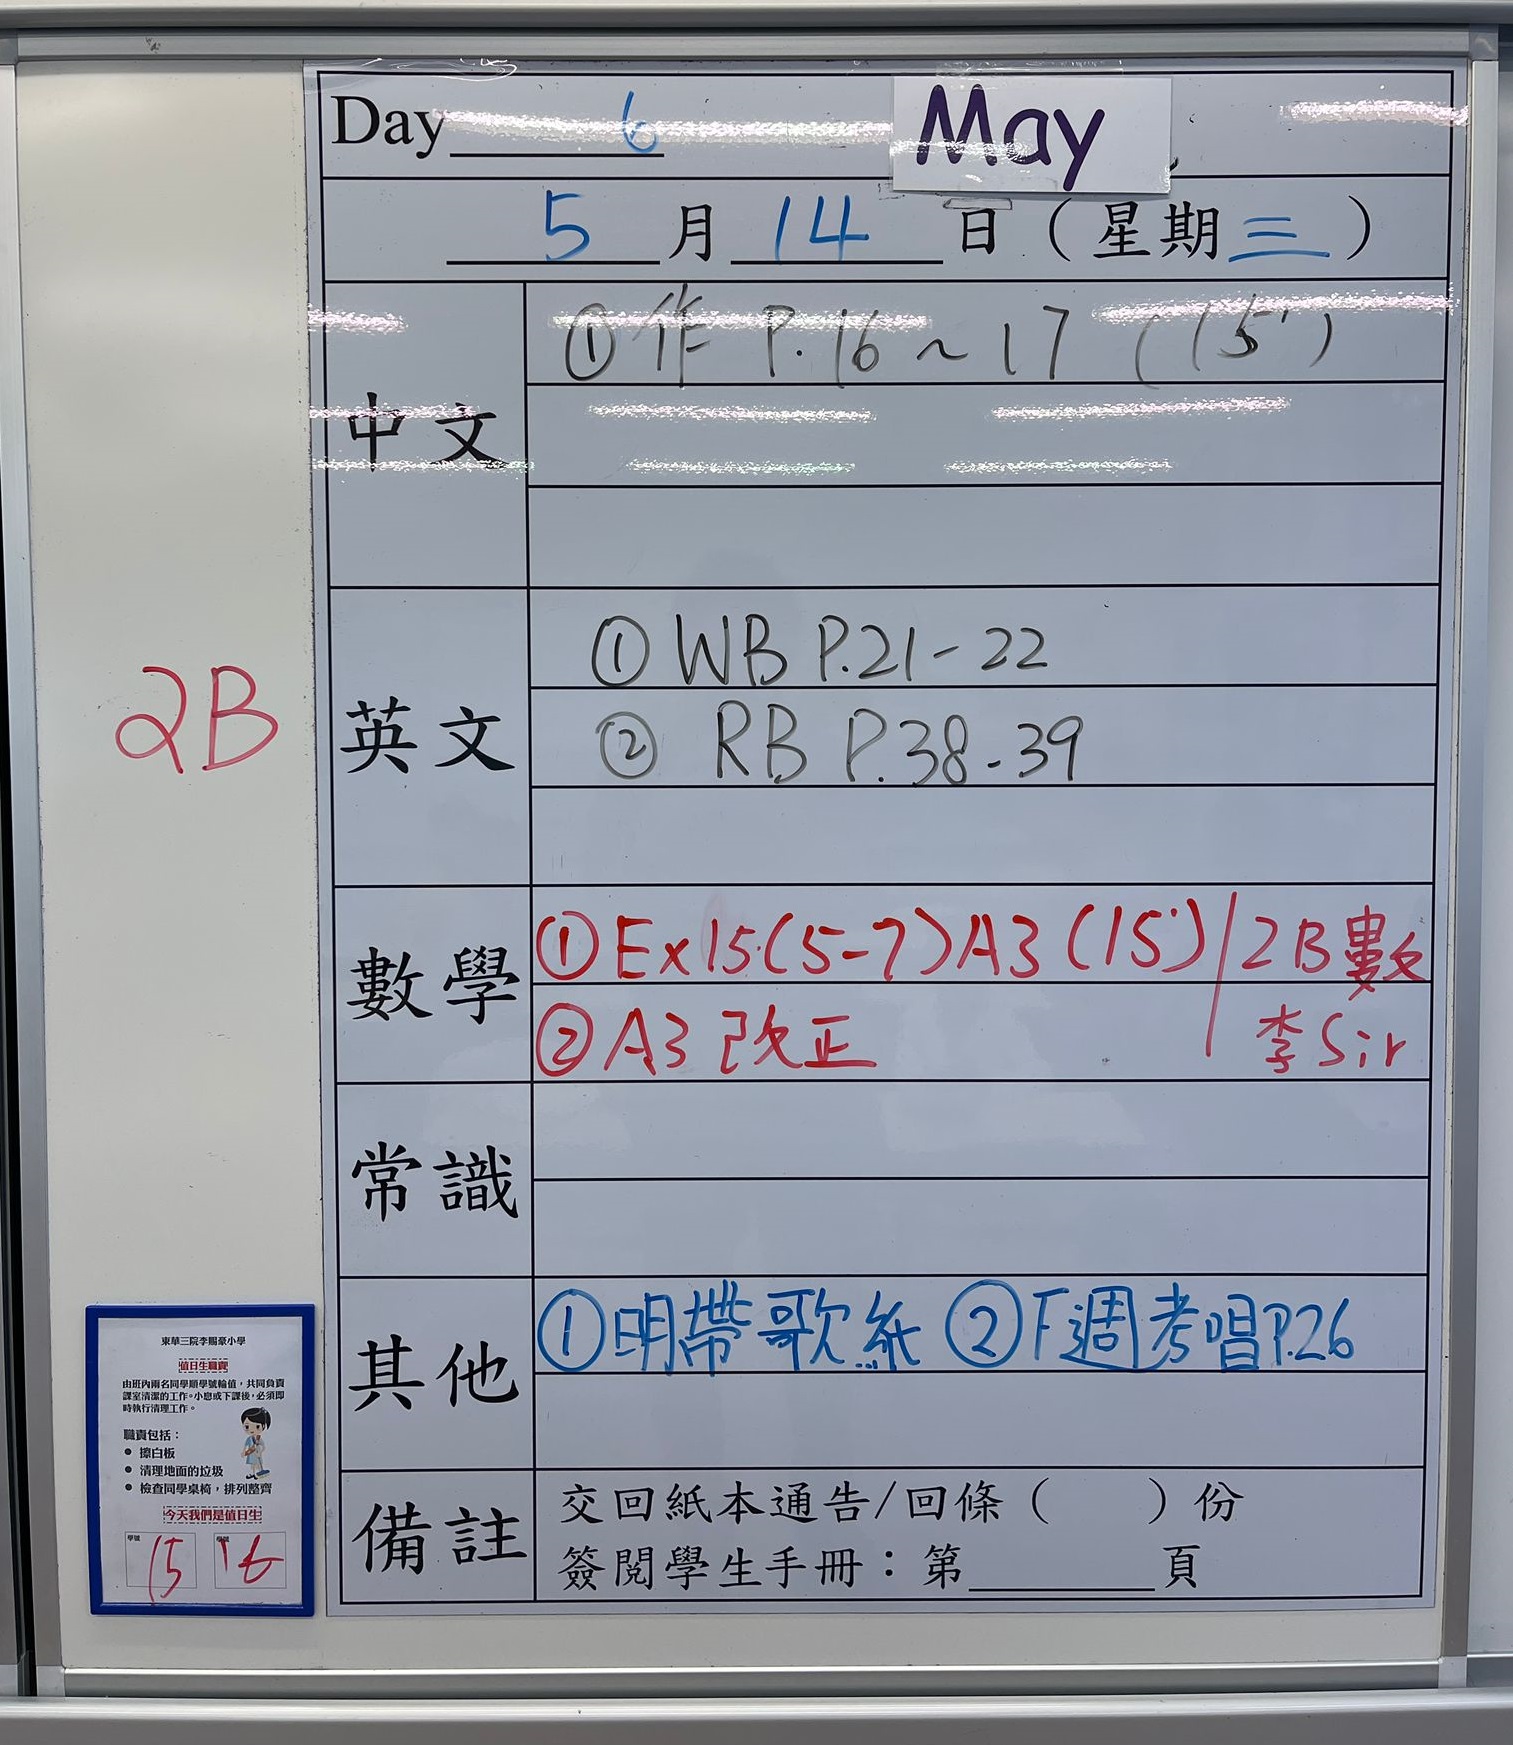 Day 6 May
5 月 14 日 (星期三)
中文
①作 P.16~17 (15')
英文
① WB P.21-22
② RB P.38-39
2B
數學
①Ex15(5-7)A3(15')/2B數
②A3改正 李Sir
常識
其他
①明帶歌紙 ②下週考唱P.26
備註
交回紙本通告/回條( )份
簽閱學生手冊:第____頁
東華三院李賜豪小學
值日生職責
由班內兩名同學順學號輪值,共同負責
課室清潔的工作。小息或下課後,必須即
時執行清理工作。
職責包括:
● 擦白板
● 清理地面的垃圾
● 檢查同學桌椅,排列整齊
今天我們是值日生
學號 15 學號 16